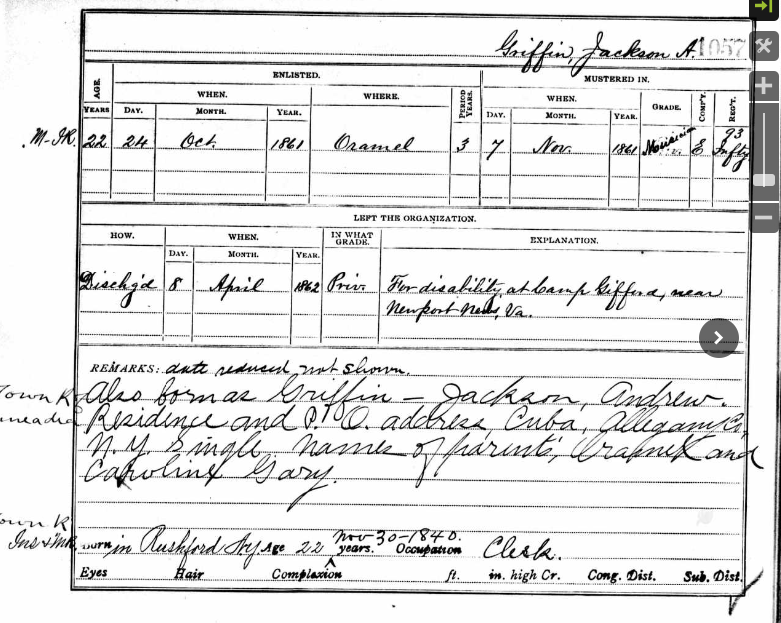 Griffin, Jackson A. 1057
ENLISTED. MUSTERED IN.
AGE. WHEN. WHERE. PERIOD WHEN. GRADE. COMP'Y. REG'T.
YEARS DAY. MONTH. YEAR. YEARS. DAY. MONTH. YEAR.
M-IR. 22 24 Oct. 1861 Oramel 3 7 Nov. 1861 Musician E 93 Infty
LEFT THE ORGANIZATION.
HOW. WHEN. IN WHAT GRADE. EXPLANATION.
DAY. MONTH. YEAR.
Dischg'd 8 April 1862 Priv. For disability, at Camp Gifford, near
Newport News, Va.
REMARKS: date reduced not shown.
Town R. Also born as Griffin - Jackson, Andrew.
Residence and P.O. address Cuba, Allegany Co,
N.Y. Single Names of parents, and
Caroline Gary.
own R
Ins & MR Born in Rushford Ny Age 22 years. Nov 30-1840. Occupation Clerk.
Eyes Hair Complexion ft. in. high Cr. Cong. Dist. Sub. Dist.